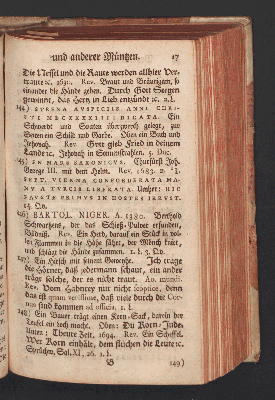 und anderer Müntzen. 17
Die Nessel und die Raute werden allhier Ver-
traute ꝛc. 1691. Rev. Braut und Bräutigam, so
einander die Hände geben. Durch Gott Seegen
gewinnt, das Hertz in Lieb entzündt ꝛc. 2. L.
144) SVEVVA AVSPICIIS ANNI CHRI-
STI MDCXXXXIIII DICATA. Ein
Schwerdt und Scepter übergwerch gelegt, zur
Seiten ein Schild und Garbe. Oben ein Buch und
Jehovah. Rev. Gott gieb Fried in deinem
Lande ꝛc. Jehovah in Sonnenstrahlen. 5. Duc.
145) EN MARS SAXONICVS. Churfürst Joh.
George III. mit dem Helm. Rev. 1683. 2.
SEPT. VIENNA CONFOEDERATA MA-
NV A TVRCIS LIBERATA. Umher: HIC
FAVSTE PRIMVS IN HOSTES IRRVIT.
146) BARTOL. NIGER. A. 1380. Berthold
Schwartzens, der das Schieß-Pulver erfunden,
Bildniß. Rev. Ein Herd, darauf ein Stück in vol-
len Flammen in die Höhe fährt, der Mönch
und schlägt die Hände zusammen. 1. L. 3. Ob.
147) Ein Hirsch mit einem Geweyhe. Ich trage
die Hörner, daß jedermann schaut, ein ander
trägt solche, der es nicht traut.
Rev. Vom Hahnrey nur nicht sceptice, denn
das ist quam verissime, daß durch die Cor-
nua sind kommen ad officia. 1. L.
148) Ein Bauer trägt einen Korn-Sack, darein der
Teufel ein Loch macht. Oben: Du Korn-Jude.
Unten: Theure Zeit. 1694. Rev. Ein Scheffel.
Wer Korn einhält, dem fluchen die Leute ꝛc.
Sprüchw. Sal. XI, 26. 1. L.
B 149)